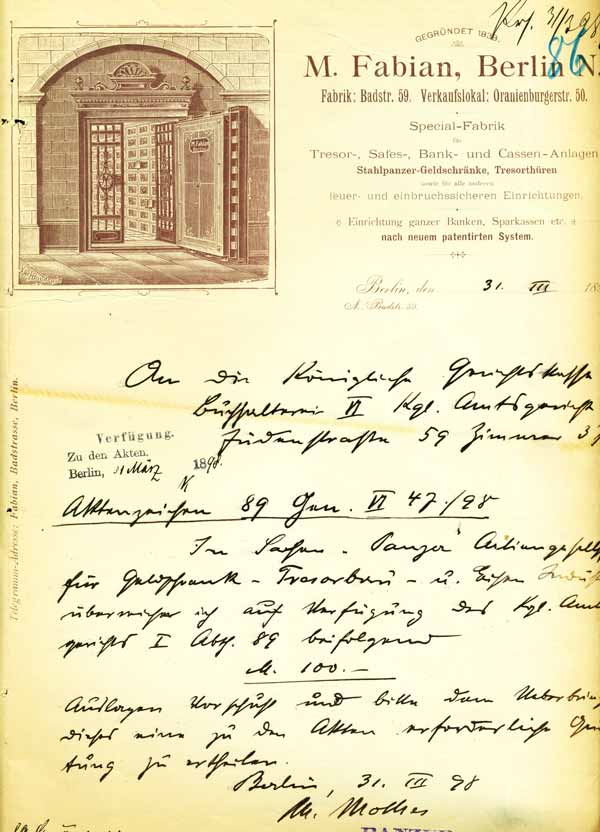 GEGRÜNDET 1838.
86
M. Fabian, Berlin N.
Fabrik: Badstr. 59. Verkaufslokal: Oranienburgerstr. 50.
Special-Fabrik
für
Tresor-, Safes-, Bank- und Cassen-Anlagen
Stahlpanzer-Geldschränke, Tresorthüren
sowie für alle anderen
feuer- und einbruchssicheren Einrichtungen.
Einrichtung ganzer Banken, Sparkassen etc.
nach neuem patentirten System.
Berlin, den 31. III 18
N. Badstr. 59.
An die Königliche Gerichtskasse
Buchhalterei VI Kgl. Amtsgericht
Jüdenstraße 59 Zimmer
Verfügung.
Zu den Akten.
Berlin, 31 März 1898.
Aktenzeichen 89 Gen. VI 47./98
In Sachen - Panzer Actiengesellsch
für Geldschrank - Tresorbau - u. Eisen Indus
überweise ich auf Verfügung des Kgl. Amts
gerichts I Abth. 89 beifolgend
M. 100.-
Auslagen Vorschuß und bitte dem Ueberbring
dieses eine zu den Akten erforderliche Quit
tung zu ertheilen.
Berlin, 31. III 98
Telegramm-Adresse: Fabian, Badstrasse, Berlin.